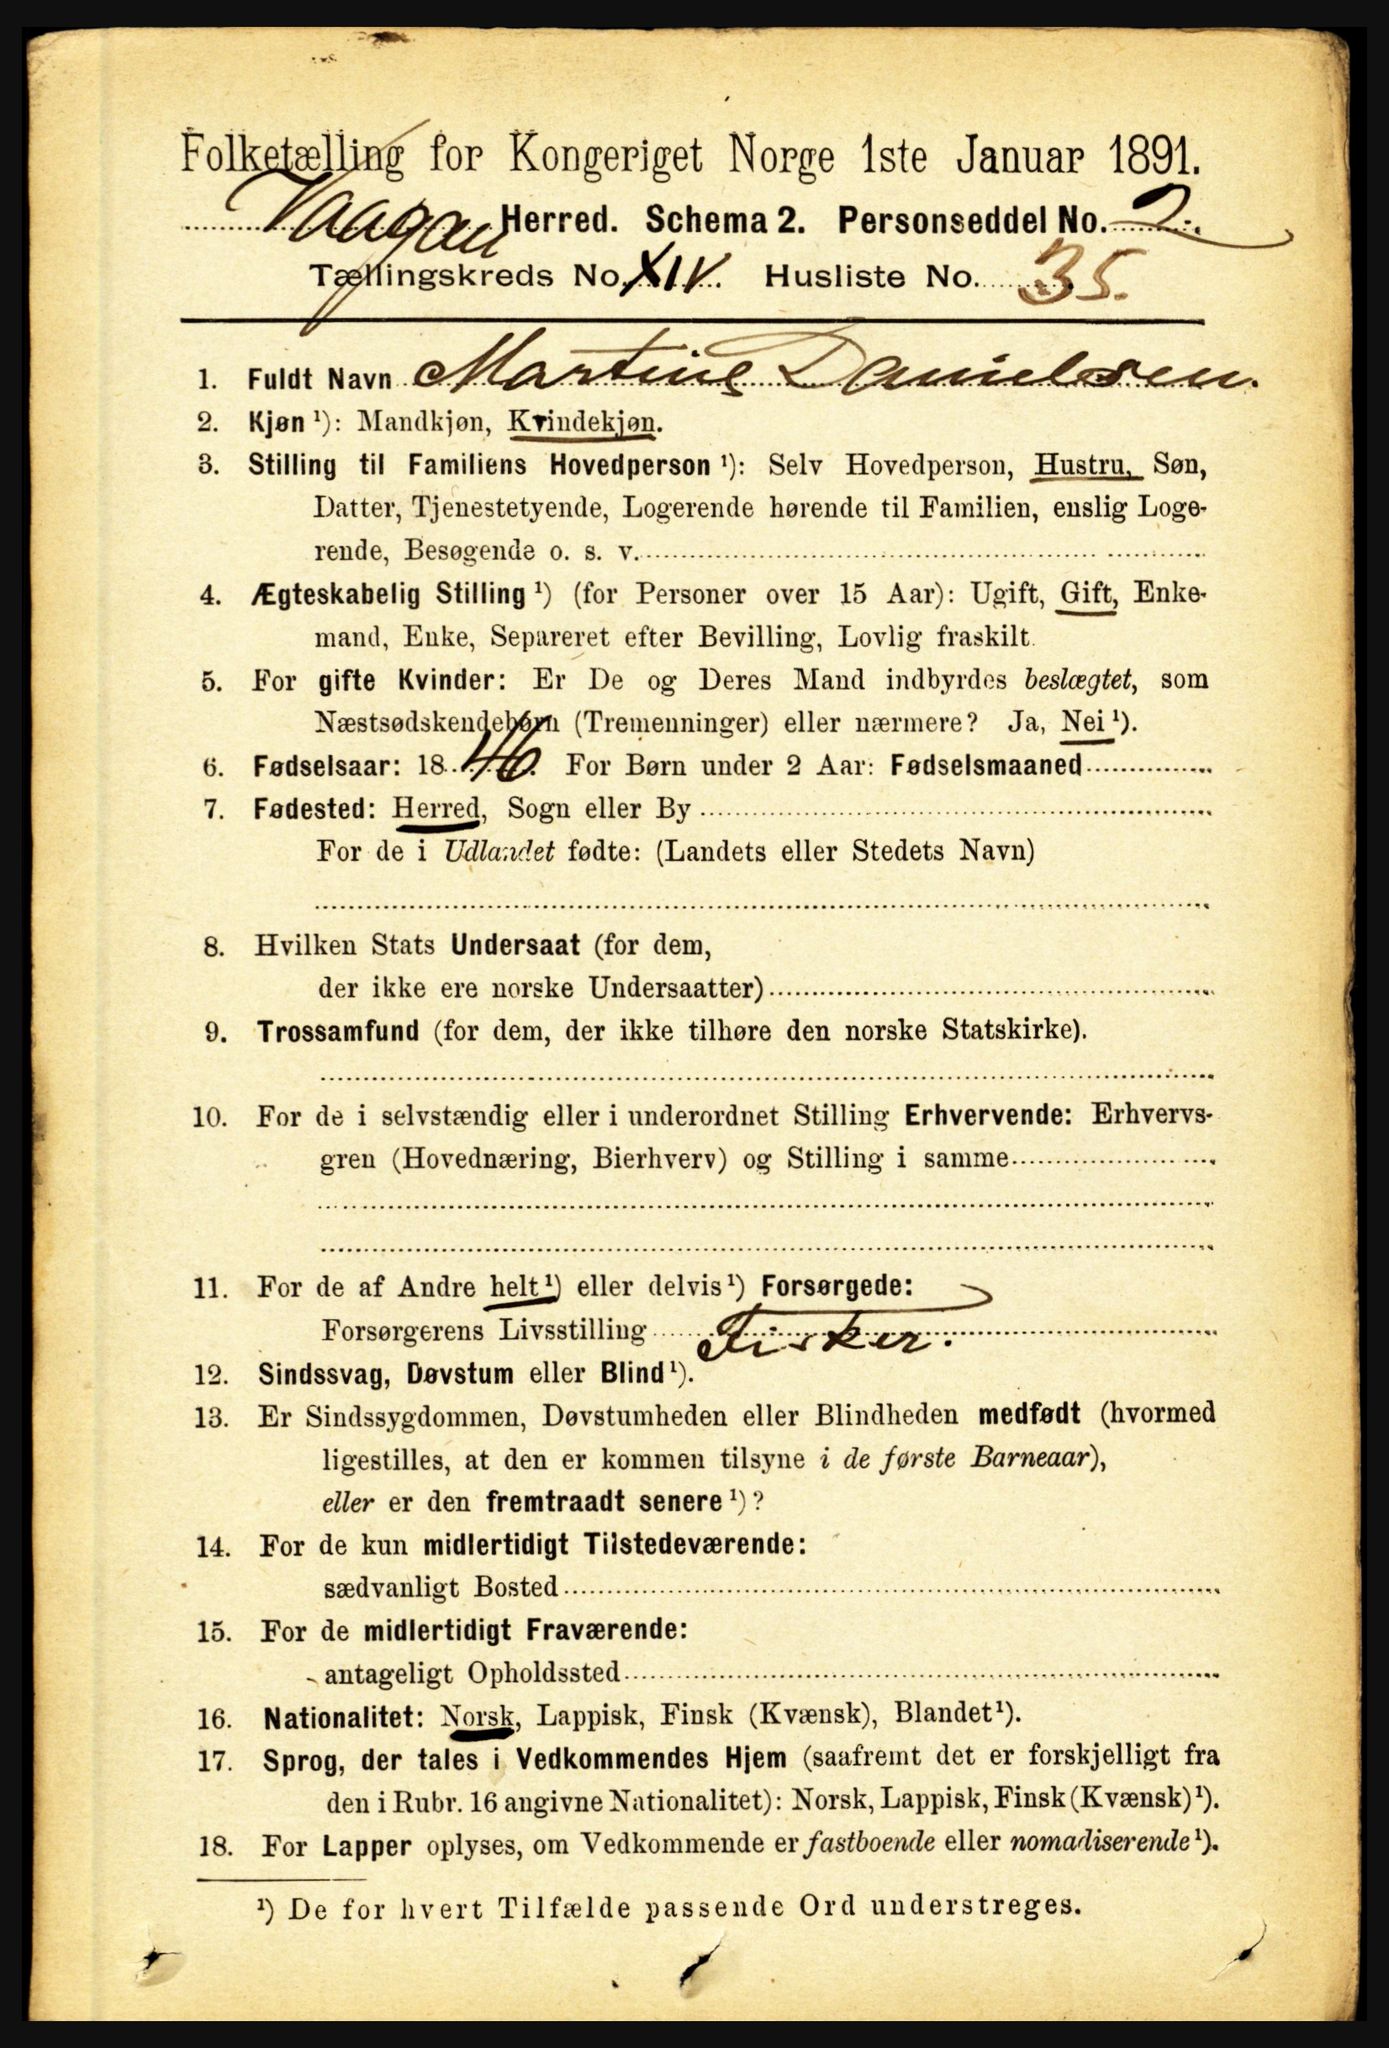 Folketælling for Kongeriget Norge 1ste Januar 1891.
Vaagan Herred. Schema 2. Personseddel No. 2.
Tællingskreds No. XIV. Husliste No. 35.
1. Fuldt Navn Martine Danielsen.
2. Kjøn ¹): Mandkjøn, Kvindekjøn.
3. Stilling til Familiens Hovedperson ¹): Selv Hovedperson, Hustru, Søn,
Datter, Tjenestetyende, Logerende hørende til Familien, enslig Loge-
rende, Besøgende o. s. v.
4. Ægteskabelig Stilling ¹) (for Personer over 15 Aar): Ugift, Gift, Enke-
mand, Enke, Separeret efter Bevilling, Lovlig fraskilt.
5. For gifte Kvinder: Er De og Deres Mand indbyrdes beslægtet, som
Næstsødskendebørn (Tremenninger) eller nærmere? Ja, Nei ¹).
6. Fødselsaar: 1846. For Børn under 2 Aar: Fødselsmaaned
7. Fødested: Herred, Sogn eller By
For de i Udlandet fødte: (Landets eller Stedets Navn)
8. Hvilken Stats Undersaat (for dem,
der ikke ere norske Undersaatter)
9. Trossamfund (for dem, der ikke tilhøre den norske Statskirke).
10. For de i selvstændig eller i underordnet Stilling Erhvervende: Erhvervs-
gren (Hovednæring, Bierhverv) og Stilling i samme
11. For de af Andre helt ¹) eller delvis ¹) Forsørgede:
Forsørgerens Livsstilling Fisker.
12. Sindssvag, Døvstum eller Blind ¹).
13. Er Sindssygdommen, Døvstumheden eller Blindheden medfødt (hvormed
ligestilles, at den er kommen tilsyne i de første Barneaar),
eller er den fremtraadt senere ¹)?
14. For de kun midlertidigt Tilstedeværende:
sædvanligt Bosted
15. For de midlertidigt Fraværende:
antageligt Opholdssted
16. Nationalitet: Norsk, Lappisk, Finsk (Kvænsk), Blandet ¹).
17. Sprog, der tales i Vedkommendes Hjem (saafremt det er forskjelligt fra
den i Rubr. 16 angivne Nationalitet): Norsk, Lappisk, Finsk (Kvænsk) ¹).
18. For Lapper oplyses, om Vedkommende er fastboende eller nomadiserende ¹).
¹) De for hvert Tilfælde passende Ord understreges.